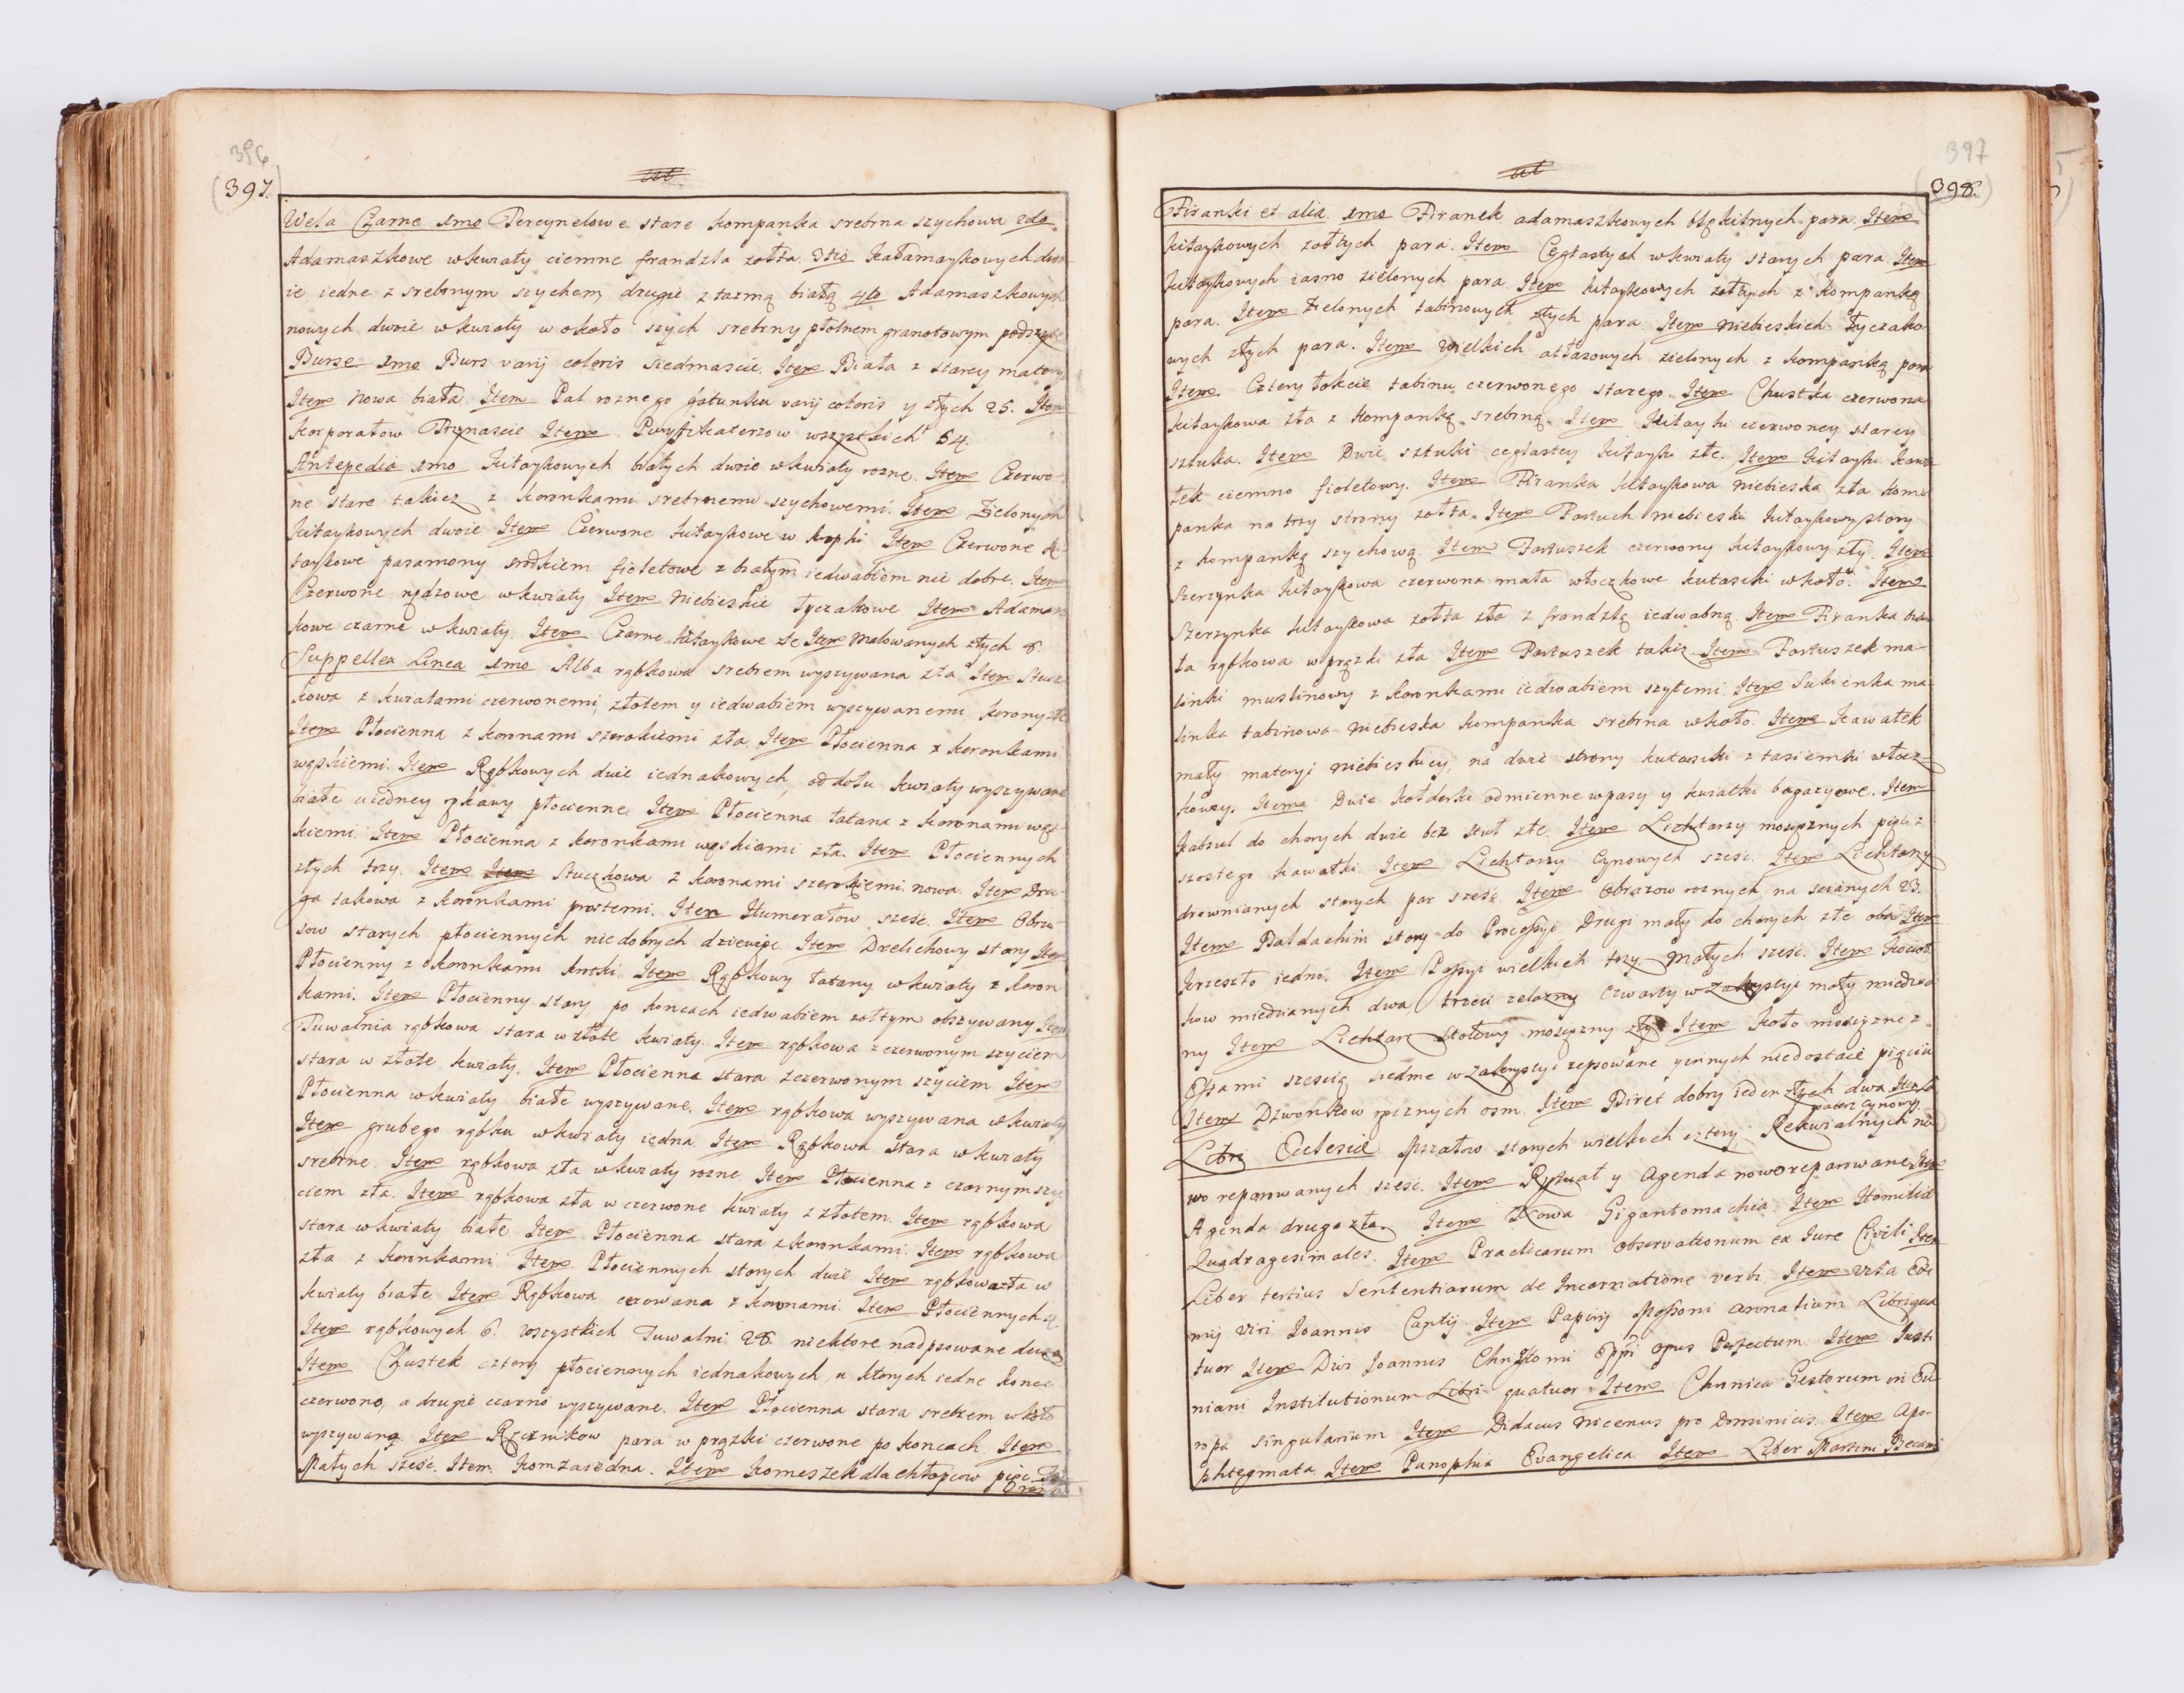 396
(397.)
Wela Czarne 1mo Percynelowe stare kompanka srebrna szychowa 2do
Adamaszkowe w kwiaty ciemne frandzla zołta 3tio Kałamaykowych dwo
ie iedne z srebrnym szychem drugie z tazmą białą 4to Adamaszkowych
nowych dwoie w kwiaty w około szych srebrny płotnem granotowym podszyte
Burse 1mo Burs varij coloris siedmascie. Item Biała z starey materyi
Item Nowa biała. Item Pal roznego gatunku varij coloris y złych 25. Item
Korporałow Trzynascie Item Puryfikaterzow wszystkich 54.
Antepedia 1mo Kitaykowych białych dwoie w kwiaty rozne. Item Czerwo-
ne stare takiez z koronkami srebrnemi szychowemi. Item Zielonych
Kitaykowych dwoie Item Czerwone kitaykowe w kropki Item Czerwone Ki
taykowe paramony srodkiem fioletowe z białym iedwabiem nie dobre. Item
Czerwone rądzowe w kwiaty Item Niebieskie Łyczakowe Item Adamasz
kowe czarne w kwiaty. Item Czarne kitaykowe złe Item Malowanych złych 8.
Suppellex Linea 1mo Alba rąbkowa srebrem wyszywana zła Item Stucz
kowa z kwiatami czerwonemi, złotem y iedwabiem wyszywanemi, korony złe
Item Płocienna z koronami szerokiemi zła. Item Płocienna z koronkami
wąskiemi. Item Rąbkowych dwie iednakowych, od dołu kwiaty wyszywane
białe u iedney rękawy płocienne. Item Płocienna łatana z koronami wąs-
kiemi. Item Płocienna z koronkami wąskiemi zła. Item Płociennych
złych trzy. Item Item Stuczkowa z koronami szerokiemi nowa. Item Dru-
ga takowa z koronkami prostemi. Item Humerałow szesc. Item Obru-
sow starych płociennych niedobrych dziewięc. Item Drelichowy stary Item
Płocienny z koronkami krotki Item Rąbkowy łatany w kwiaty z koron
kami. Item Płocienny stary, po koncach iedwabiem zołtym obszywany Item
Tuwalnia rąbkowa stara w złote kwiaty. Item rąbkowa z czerwonym szyciem
stara w złote kwiaty. Item Płocienna stara z czerwonym szyciem Item
Płocienna w kwiaty białe wyszywane. Item rąbkowa wyszywana w kwiaty
Item grubego rąbku w kwiaty iedna. Item Rąbkowa stara w kwiaty
srebrne Item rąbkowa zła w kwiaty rozne. Item Płocienna z czarnym szy
ciem zła. Item rąbkowa zła w czerwone kwiaty z złotem. Item rąbkowa
stara w kwiaty białe Item Płocienna stara z koronkami. Item rąbkowa
zła z koronkami Item Płociennych starych dwie. Item rąbkowa zła w
kwiaty białe Item Rąbkowa cerowana z koronami. Item Płociennych 4
Item rąbkowych 6. wszystkich Tuwalni 28 niektore nadpsowane
Item Chustek cztery płociennych iednakowych, u ktorych iedne konce
czerwono, a drugie czarno wyszywane. Item Płocienna stara srebrem w koło
wyszywana Item Ręcznikow para w prązki czerwone po koncach Item
Małych szesc. Item Komza iedna. Item Komeszek dla chłopcow pięc
397
(398.)
Firanki et alia. 1mo Firanek adamaszkowych błękitnych para. Item
kitaykowych zołtych para. Item Ceglastych w kwiaty starych para Item
kitaykowych iasno zielonych para Item kitaykowych zołtych z kompanką
para. Item Zielonych tabinowych złych para Item Niebieskich Łyczako
wych złych para. Item Wielkich atłasowych zielonych z kompanką para
Item Cztery łokcie tabinu czerwonego starego. Item Chustka czerwona
kitaykowa zła z kompanką srebrną. Item Kitayki czerwoney starey
sztuka. Item Dwie sztuki ceglastey kitayki złe. Item Kitayki Kawa
łek ciemno fioletowy. Item Firanka kitaykowa niebieska zła kom
panka na trzy strony zołta. Item Fartuch niebieski kitaykowy stary
z kompanką szychową. Item Fartuszek czerwony kitaykowy zły. Item
Szerzynka kitaykowa czerwona mała włoczkowe kutasiki w koło. Item
Szerzynka kitaykowa zołta zła z frandzlą iedwabną Item Firanka bia
ła rąbkowa w prązki zła Item Fartuszek takiz Item Fartuszek ma-
linki muslinowy z koronkami iedwabiem szytemi Item Sukienka ma
linka tabinowa niebieska kompanka srebrna w koło. Item kawałek
mały materyi niebieskiey, na dwie strony kutasiki z tasiemki włocz-
kowey. Item Dwie kołderki odmienne w pasy y kwiatki bagazyowe. Item
Kabzul do chorych dwie bez stuł złe. Item Lichtarzy mosięznych pięc z
szostego kawałki Item Lichtarzy Cynowych szesc. Item Lichtarzy
drewnianych starych par szesc Item Obrazow roznych na scianych 23.
Item Baldachim stary do Processyi Drugi mały do chorych złe oba Item
Krzesło iedno. Item Passyi wielkich trzy. Małych szesc. Item Kocioł
kow miedzianych dwa trzeci zelazny czwarty w Zakrystyi mały miedzia
ny Item Lichtarz stołowy mosięzny zły Item koło mosięzne z
szescią siedme w Zakrystyi zepsowane y innych niedostaie pięciu
Item Dzwonkow ręcznych osm. Item Biret dobry ieden złych dwa Item
pater cynowy.
Libri Ecclesiae Mszałow starych wielkich cztery, Rekwialnych no
wo reparowanych szesc. Item Rytuał y Agenda nowo reparowane. Item
Agenda druga zła. Item Nowa Gigantomachia Item Homiliae
Quadragesimales. Item Practicarum observationum ex Iure Civili Item
Liber tertius Sententiarum de Incarnatione verbi. Item Vita Exi
mij viri Ioannis Cantij Item Papirij Massoni annalium Libri qua
tuor Item Divi Ioannis Chrysostomi Eppi opus Perfectum Item Iusti
niani Institutionum Libri quatuor Item Chronica Gestorum in Eu
ropa singularium Item Didacus Nicenus pro Dominicis. Item Apo-
phtegmata Item Panoplia Evangelica Item Liber Martini Becani